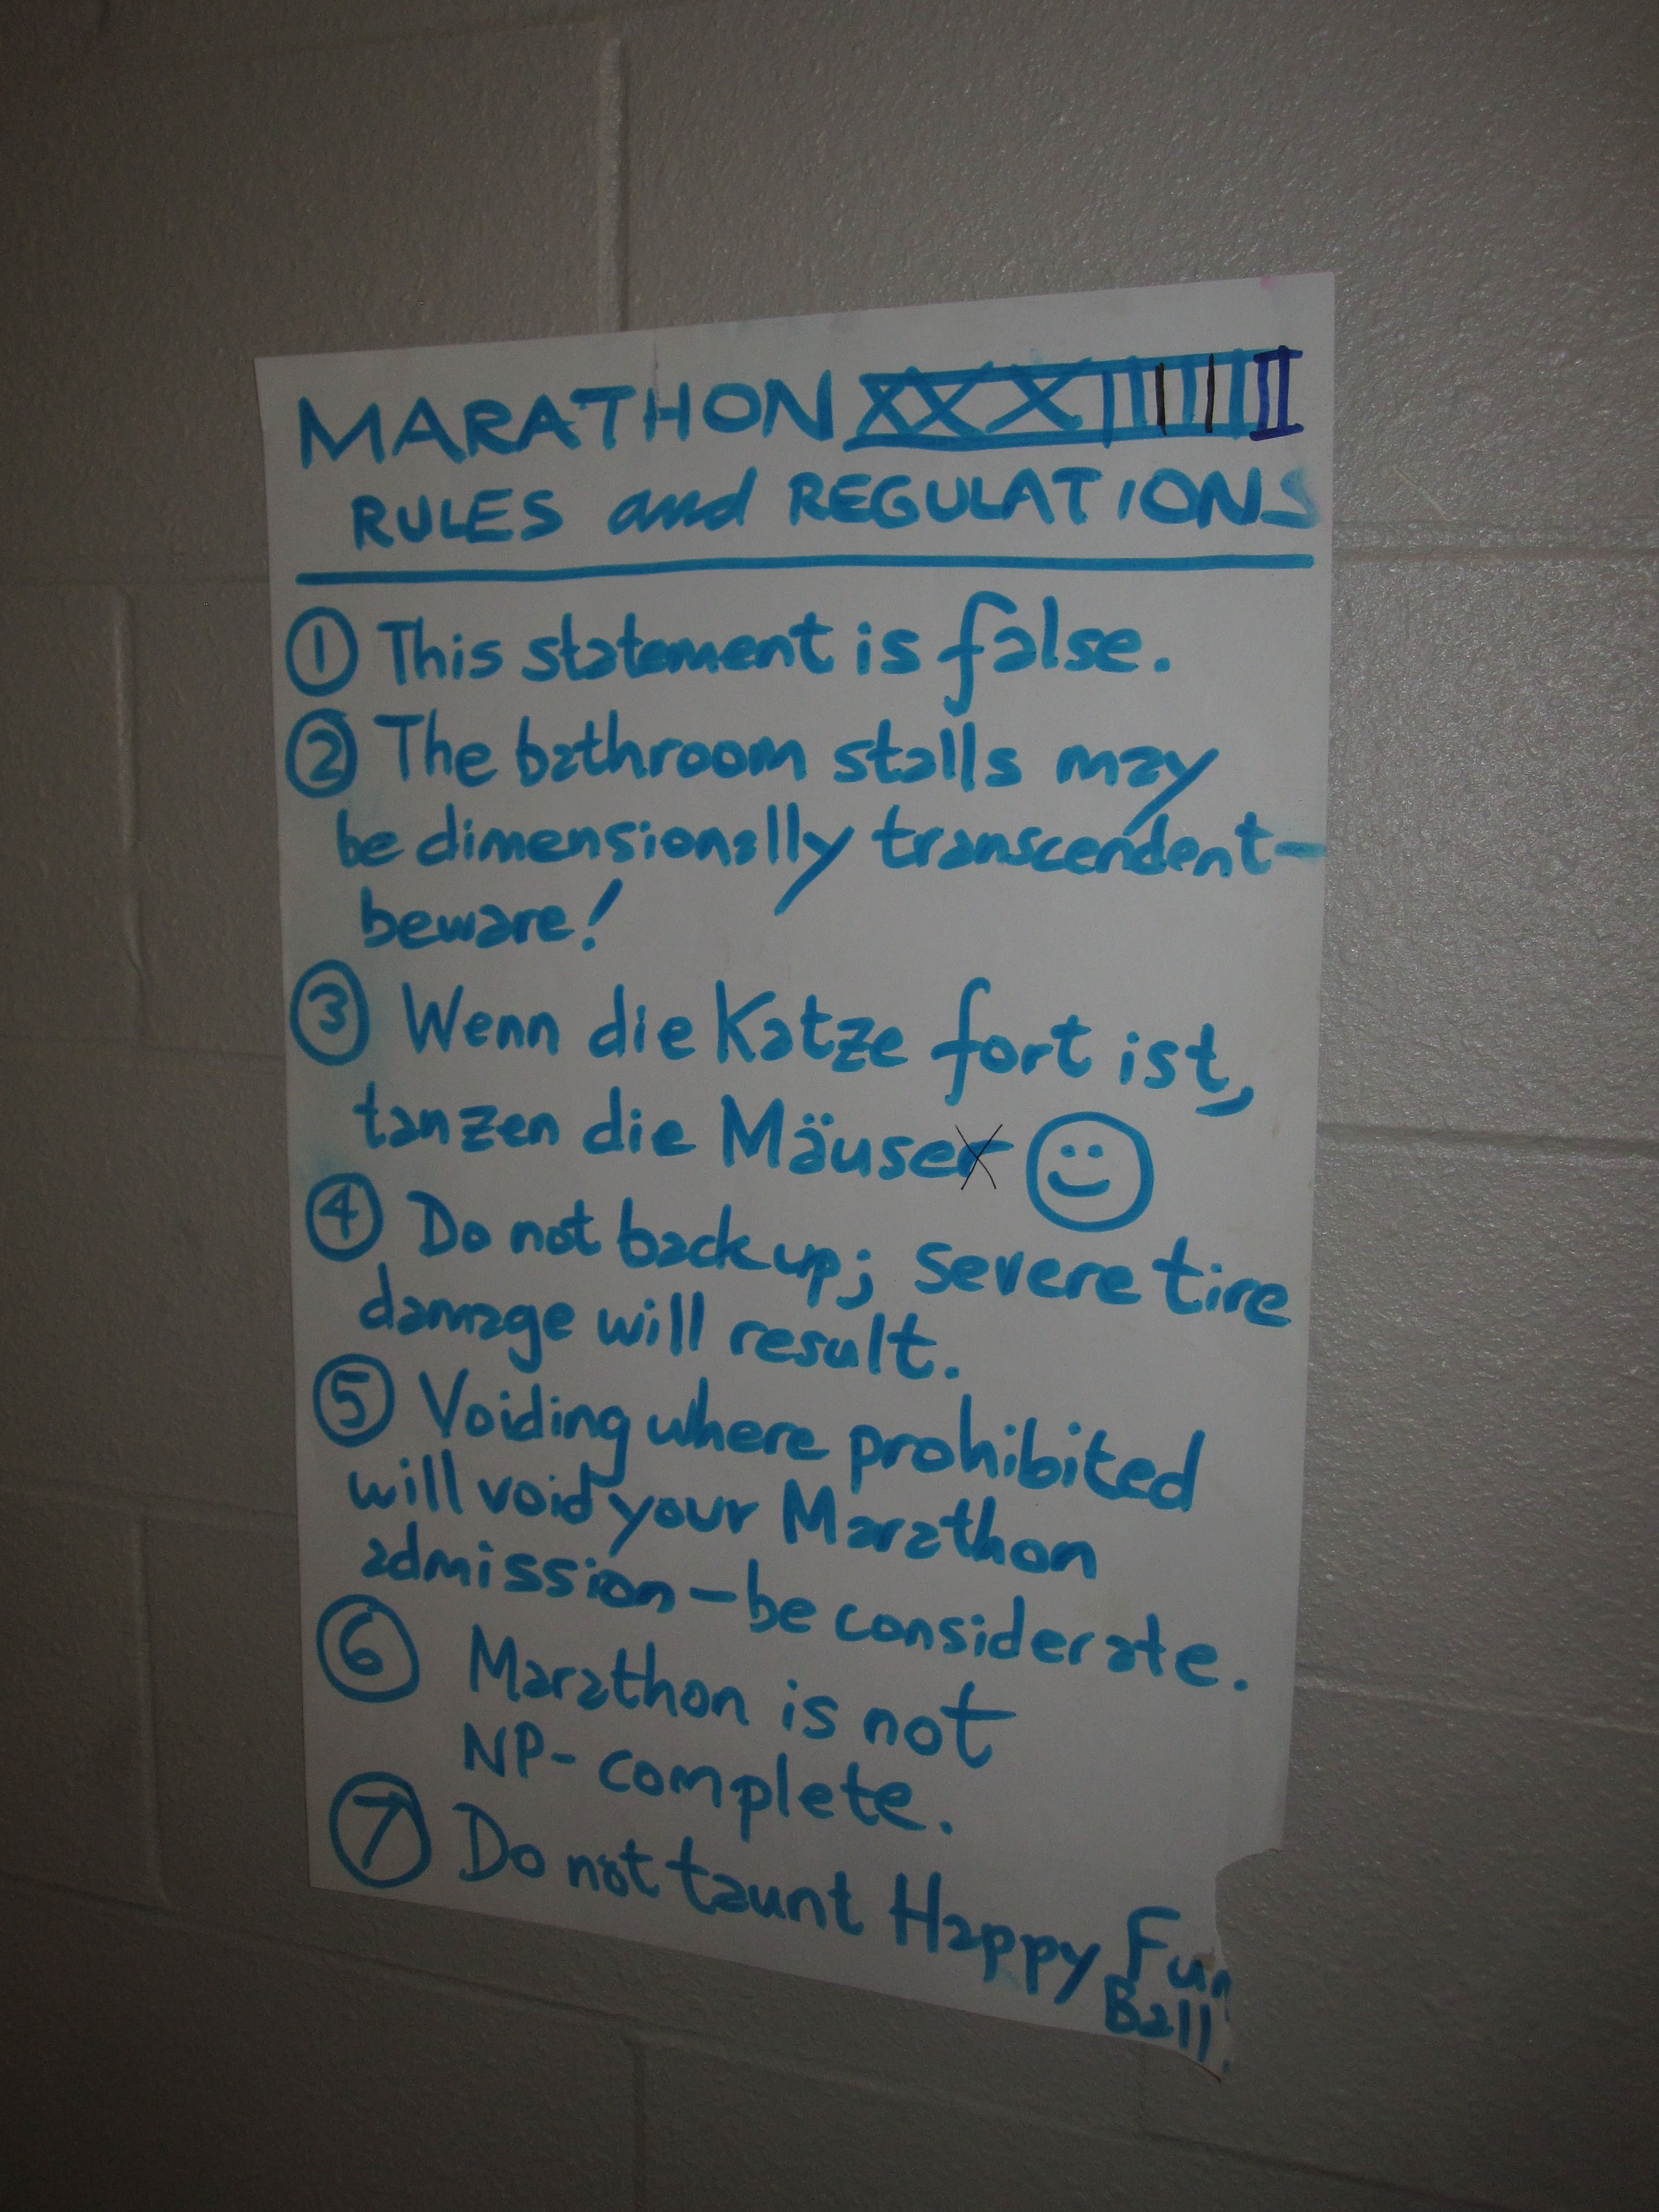 MARATHON XXXIIIIIIII
RULES and REGULATIONS
① This statement is false.
② The bathroom stalls may
be dimensionally transcendent—
beware!
③ Wenn die Katze fort ist,
tanzen die Mäuse
④ Do not back up; severe tire
damage will result.
⑤ Voiding where prohibited
will void your Marathon
admission—be considerate.
⑥ Marathon is not
NP-complete.
⑦ Do not taunt Happy Fun
Ball.